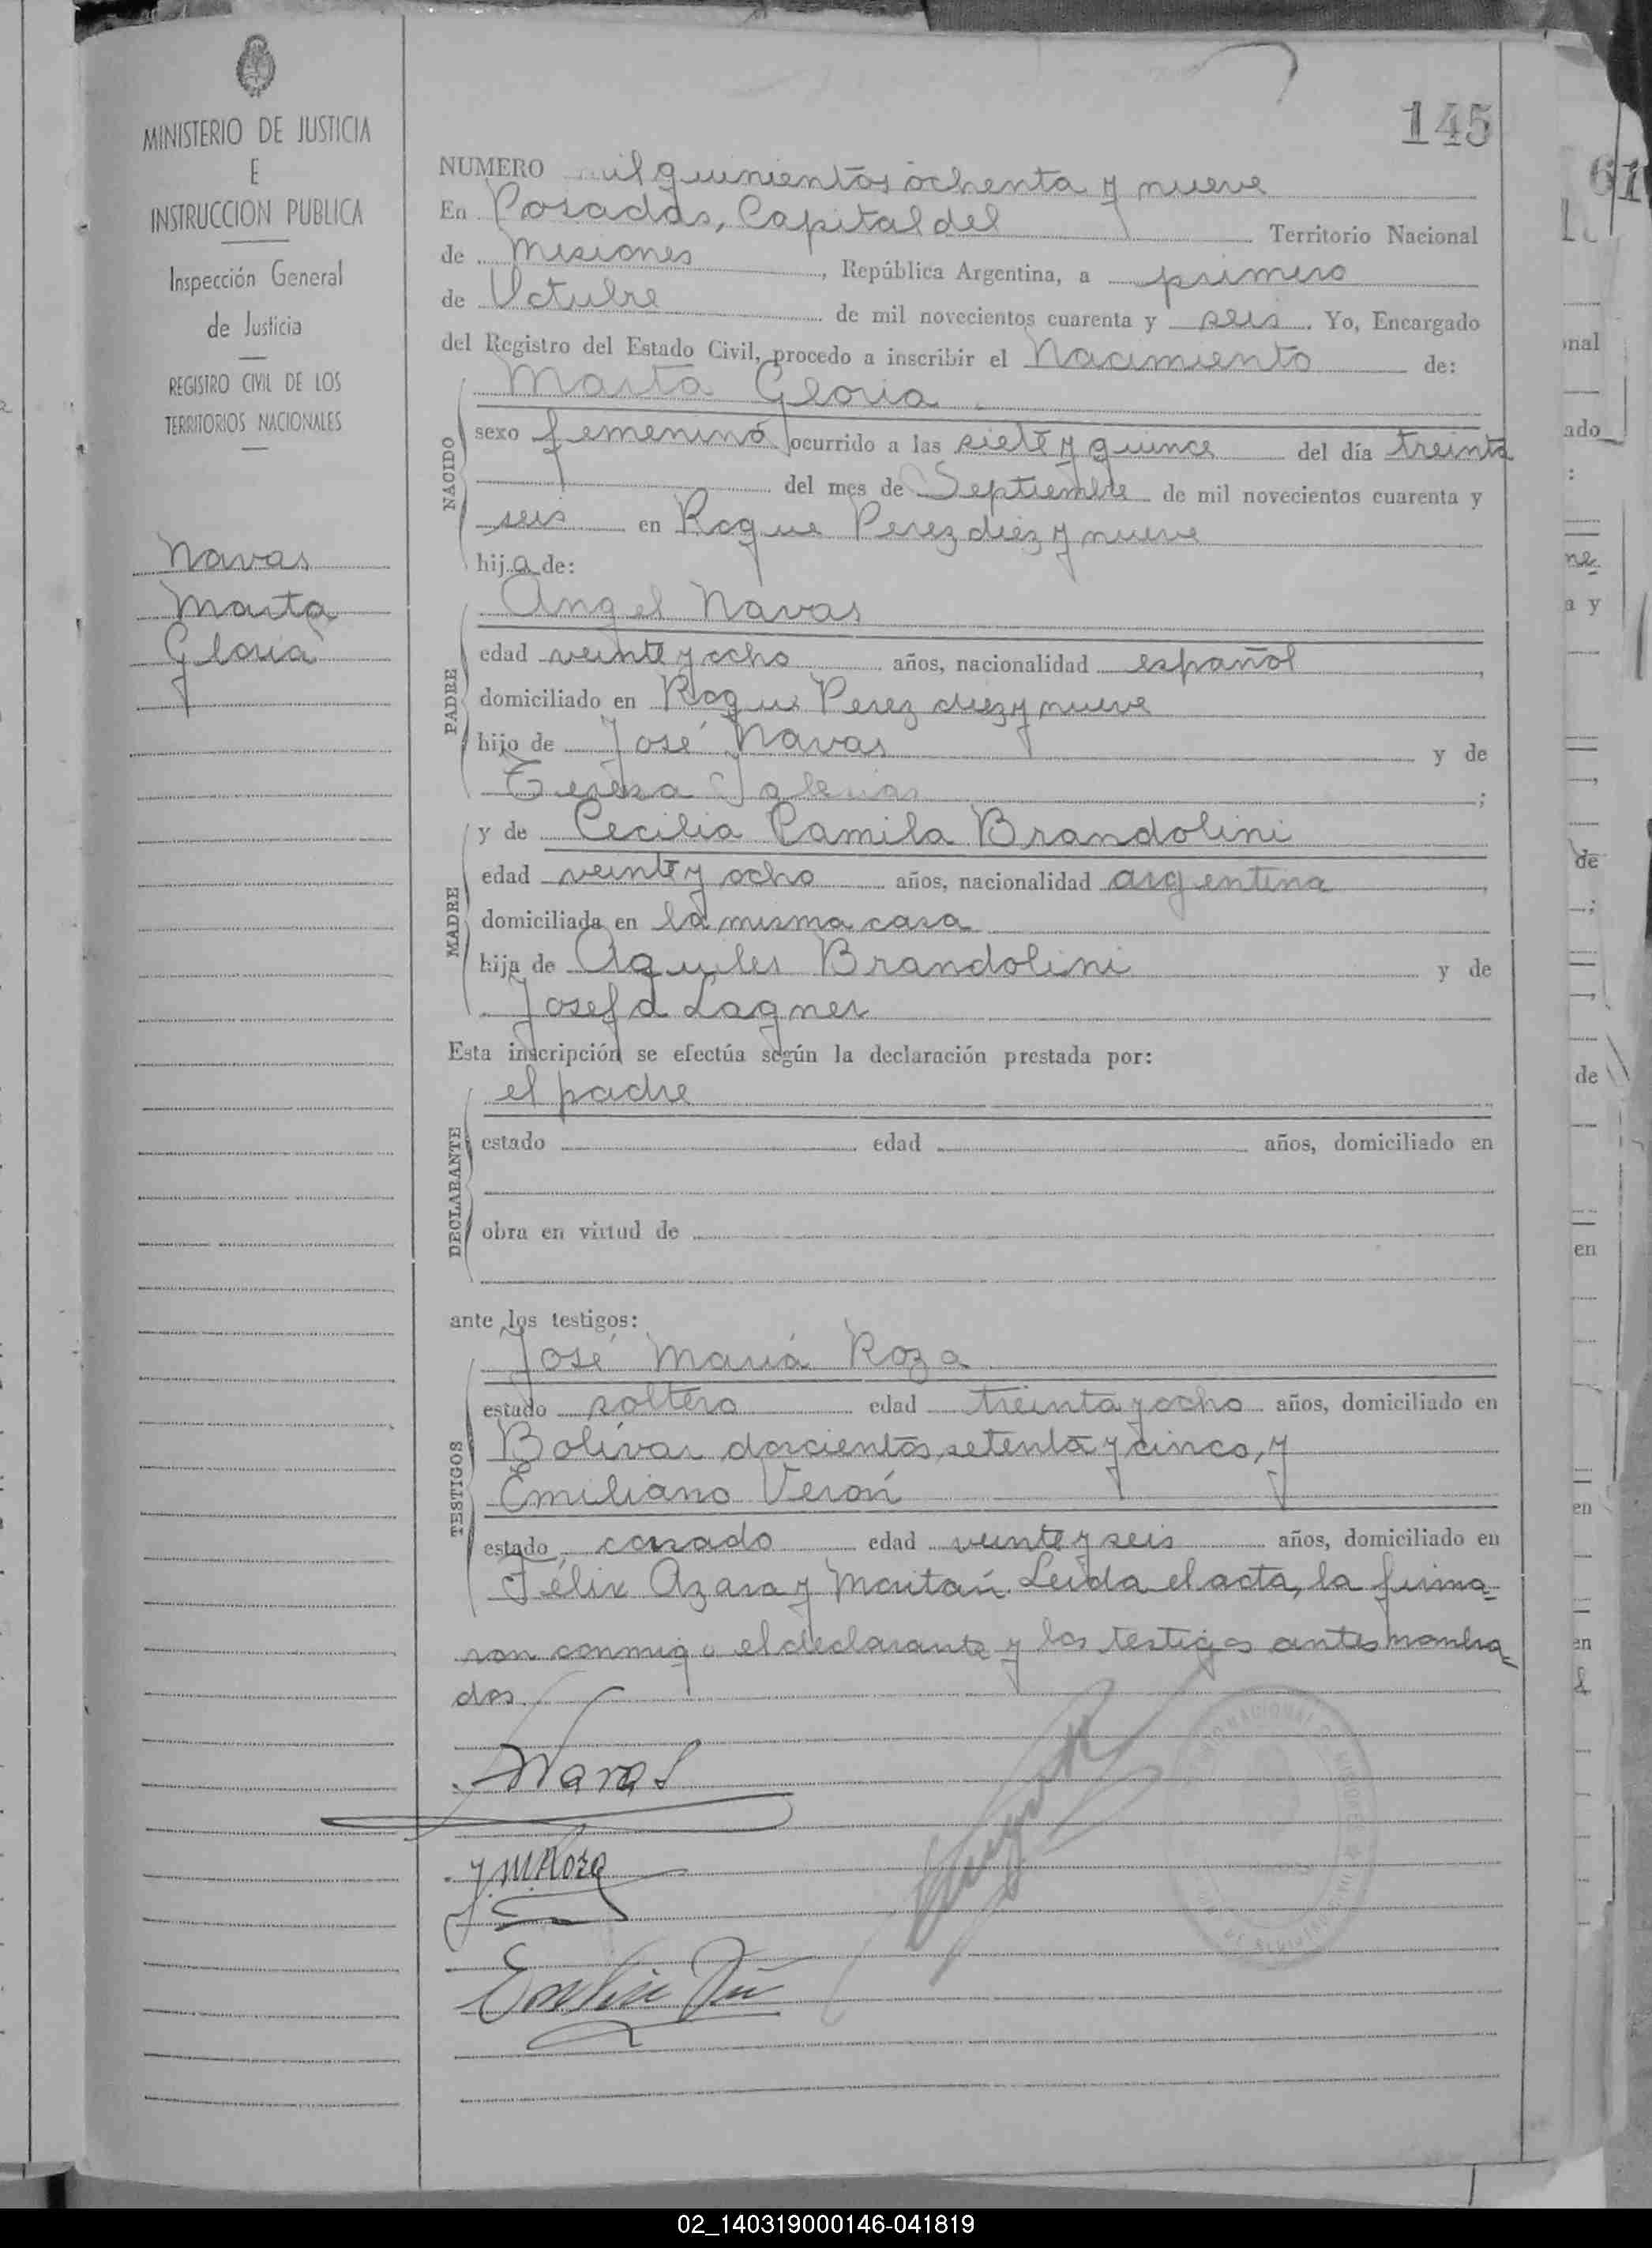 MINISTERIO DE JUSTICIA
E
INSTRUCCION PUBLICA
Inspección General
de Justicia
REGISTRO CIVIL DE LOS
TERRITORIOS NACIONALES
Navas
Marta
Gloria
145
NUMERO mil quinientos ochenta y nueve
En Posadas, Capital del Territorio Nacional
de Misiones, República Argentina, a primero
de Octubre de mil novecientos cuarenta y seis. Yo, Encargado
del Registro del Estado Civil, procedo a inscribir el Nacimiento de:
Marta Gloria
NACIDO
sexo femenino ocurrido a las siete y quince del día treinta
del mes de Septiembre de mil novecientos cuarenta y
seis en Roque Perez diez y nueve
hija de:
Angel Navas
PADRE
edad veinte y ocho años, nacionalidad español
domiciliado en Roque Perez diez y nueve
hijo de José Navas y de
Teresa Iglesias;
MADRE
y de Cecilia Camila Brandolini
edad veinte y ocho años, nacionalidad argentina
domiciliada en la misma casa
hija de Aquiles Brandolini y de
Josefa Lagner
Esta inscripción se efectúa según la declaración prestada por:
el padre
DECLARANTE
estado edad años, domiciliado en
obra en virtud de
ante los testigos:
José María Roza
TESTIGOS
estado soltero edad treinta y ocho años, domiciliado en
Bolívar doscientos setenta y cinco, y
Emiliano Verón
estado casado edad veinte y seis años, domiciliado en
Félix Azara y Maitán. Leida el acta, la firma=
ron conmigo el declarante y los testigos antes nombra=
dos.
Navas
J. M. Roza
61
onal
ado
:
ne
a y
de
de
en
en
en
02_140319000146-041819